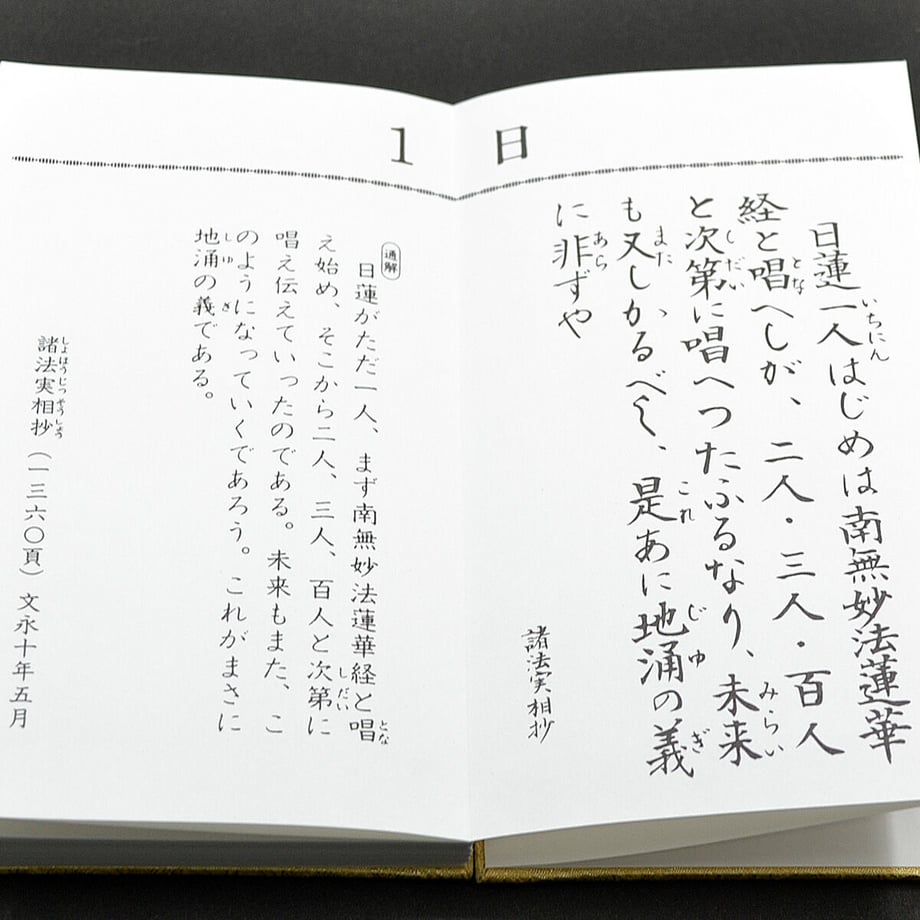 1日
日蓮一人はじめは南無妙法蓮華
経と唱へしが、二人・三人・百人
と次第に唱へつたふるなり、未来
も又しかるべし、是あに地涌の義
に非ずや
諸法実相抄
通解
日蓮がただ一人、まず南無妙法蓮華経と唱
え始め、そこから二人、三人、百人と次第に
唱え伝えていったのである。未来もまた、こ
のようになっていくであろう。これがまさに
地涌の義である。
諸法実相抄(一三六〇頁) 文永十年五月